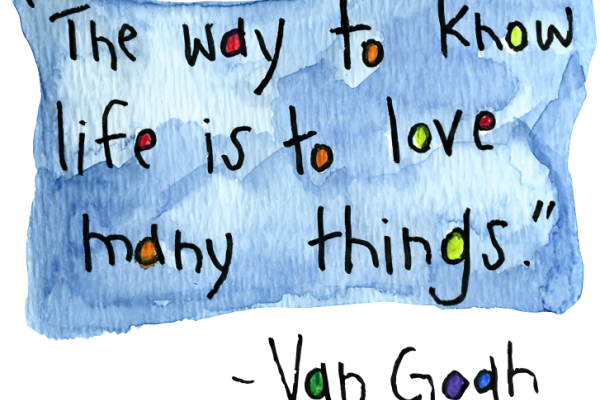 "The way to know
life is to love
many things."
- Van Gogh